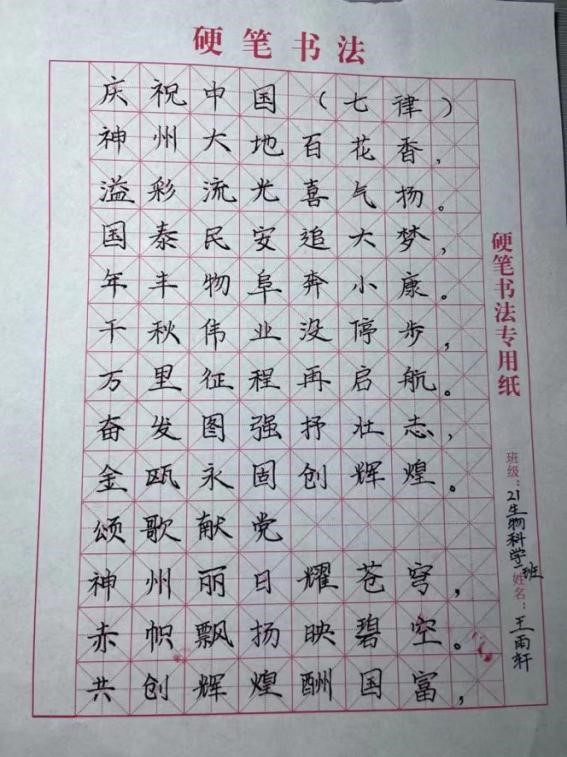 硬笔书法
庆祝中国（七律）
神州大地百花香，
溢彩流光喜气扬。
国泰民安追大梦，
年丰物阜奔小康。
千秋伟业没停步，
万里征程再启航。
奋发图强抒壮志，
金瓯永固创辉煌。
颂歌献党
神州丽日耀苍穹，
赤帜飘扬映碧空。
共创辉煌酬国富，
硬笔书法专用纸
班级：21生物科学一班 姓名：王雨轩